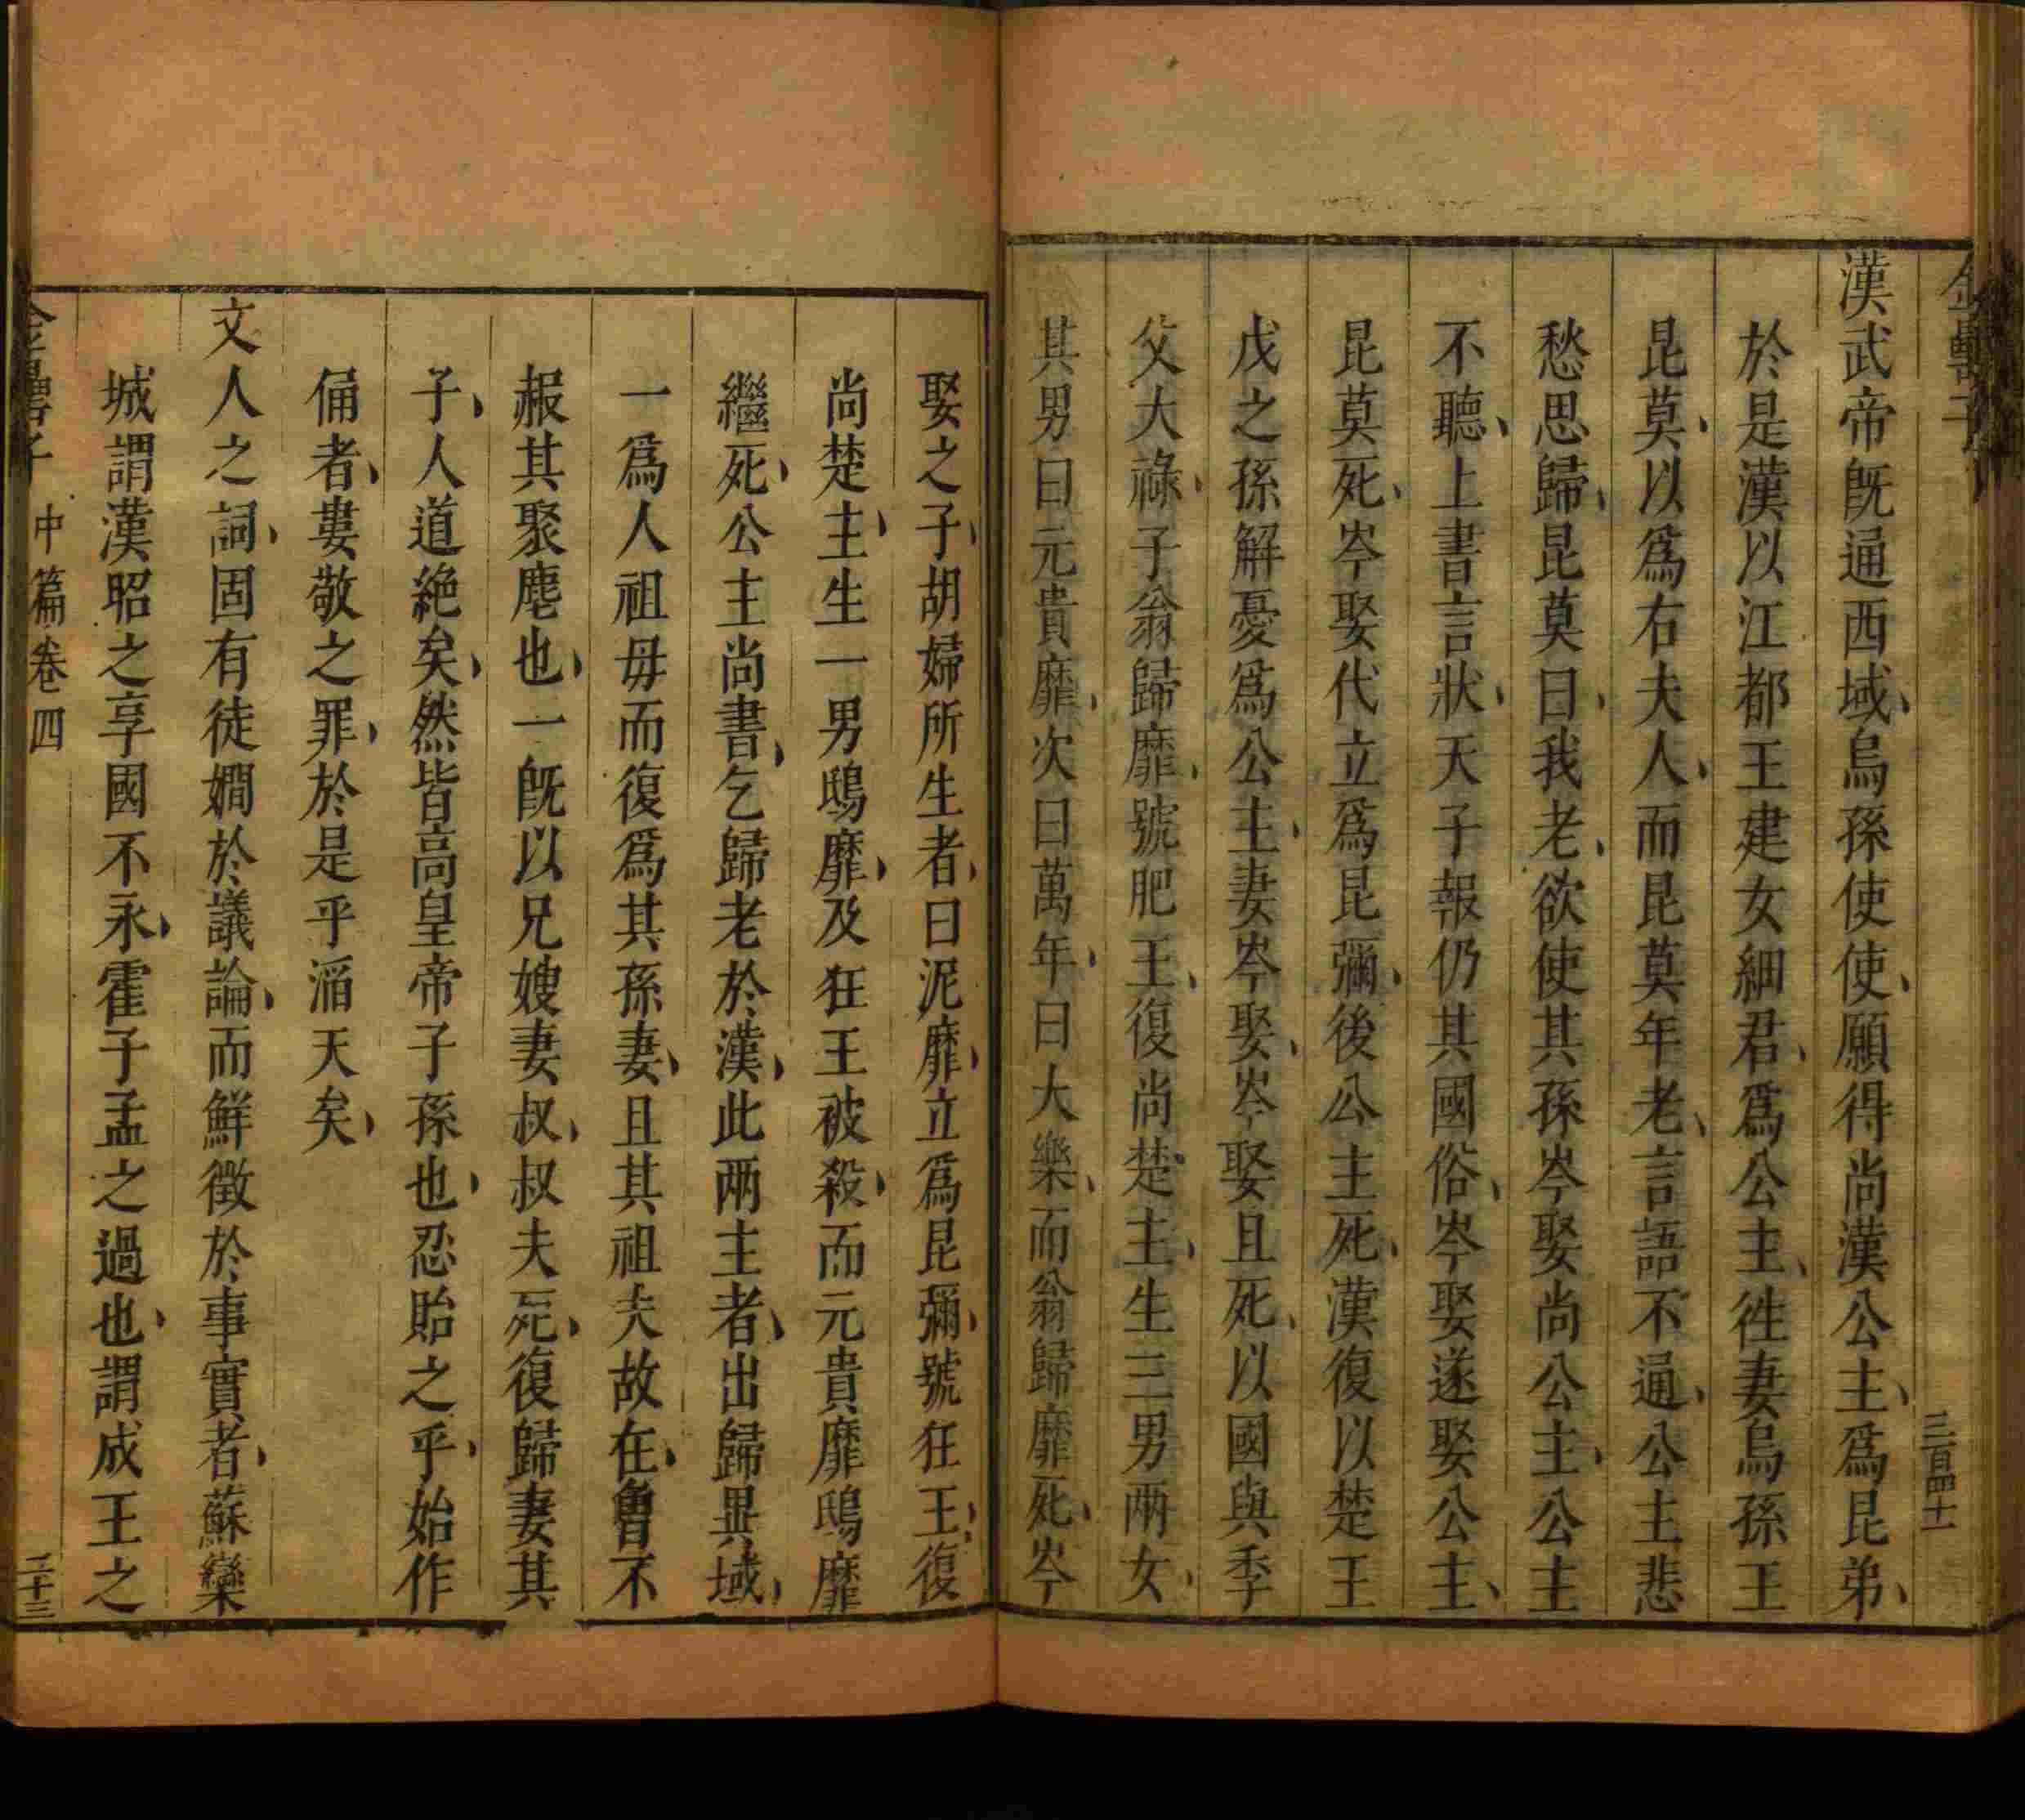 三百四十一
漢武帝旣通西域、烏孫使使、願得尚漢公主、爲昆弟、
於是漢以江都王建女細君、爲公主、徃妻烏孫王
昆莫、以爲右夫人、而昆莫年老、言語不通、公主悲
愁思歸、昆莫曰、我老、欲使其孫岑娶尚公主、公主
不聽、上書言狀、天子報仍其國俗、岑娶遂娶公主、
昆莫死、岑娶代立爲昆彌、後公主死、漢復以楚王
戊之孫解憂爲公主、妻岑娶、岑娶且死、以國與季
父大祿、子翁歸靡、號肥王、復尚楚主、生三男兩女、
其男曰元貴靡、次曰萬年、曰大樂、而翁歸靡死、岑
娶之子、胡婦所生者、曰泥靡、立爲昆彌、號狂王、復
尚楚主、生一男鴟靡、及狂王被殺、而元貴靡鴟靡
繼死、公主尚書、乞歸老於漢、此兩主者、出歸異域、
一爲人祖母而復爲其孫妻、且其祖夫故在、曾不
赧其聚麀也、一旣以兄嫂妻叔、叔夫死、復歸妻其
子、人道絕矣、然皆高皇帝子孫也、忍貽之乎、始作
俑者、婁敬之罪、於是乎滔天矣、
文人之詞、固有徒嫺於議論、而鮮徵於事實者、蘇欒
城謂漢昭之享國不永、霍子孟之過也、謂成王之
中篇卷四
二十三